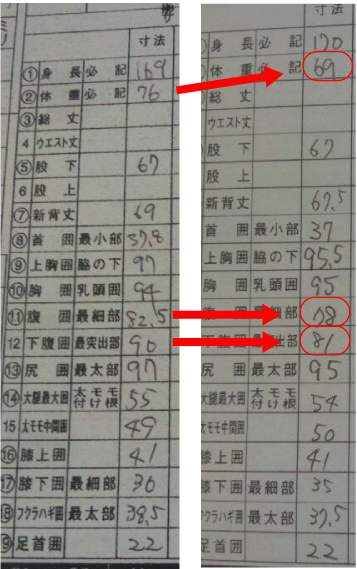 寸法
①身長 必記 169
②体重 必記 76
③総丈
4 ウエスト丈
⑤股下 67
6 股上
⑦新背丈 69
⑧首囲 最小部 37.8
⑨上胸囲 脇の下 97
⑩胸囲 乳頭囲 94
⑪腹囲 最細部 82.5
12 下腹囲 最突出部 90
⑬尻囲 最太部 97
⑭大腿最大囲 太モモ付け根 55
15 太モモ中間囲 49
⑯膝上囲 41
⑰膝下囲 最細部 36
⑱フクラハギ囲 最太部 38.5
⑲足首囲 22
寸法
身長 必記 170
体重 必記 69
総丈
ウエスト丈
股下 67
股上
新背丈 67.5
首囲 最小部 37
上胸囲 脇の下 95.5
胸囲 乳頭囲 95
腹囲 最細部 78
下腹囲 最突出部 81
尻囲 最太部 95
大腿最大囲 太モモ付け根 54
太モモ中間囲 50
膝上囲 41
膝下囲 最細部 35
フクラハギ囲 最太部 37.5
足首囲 22